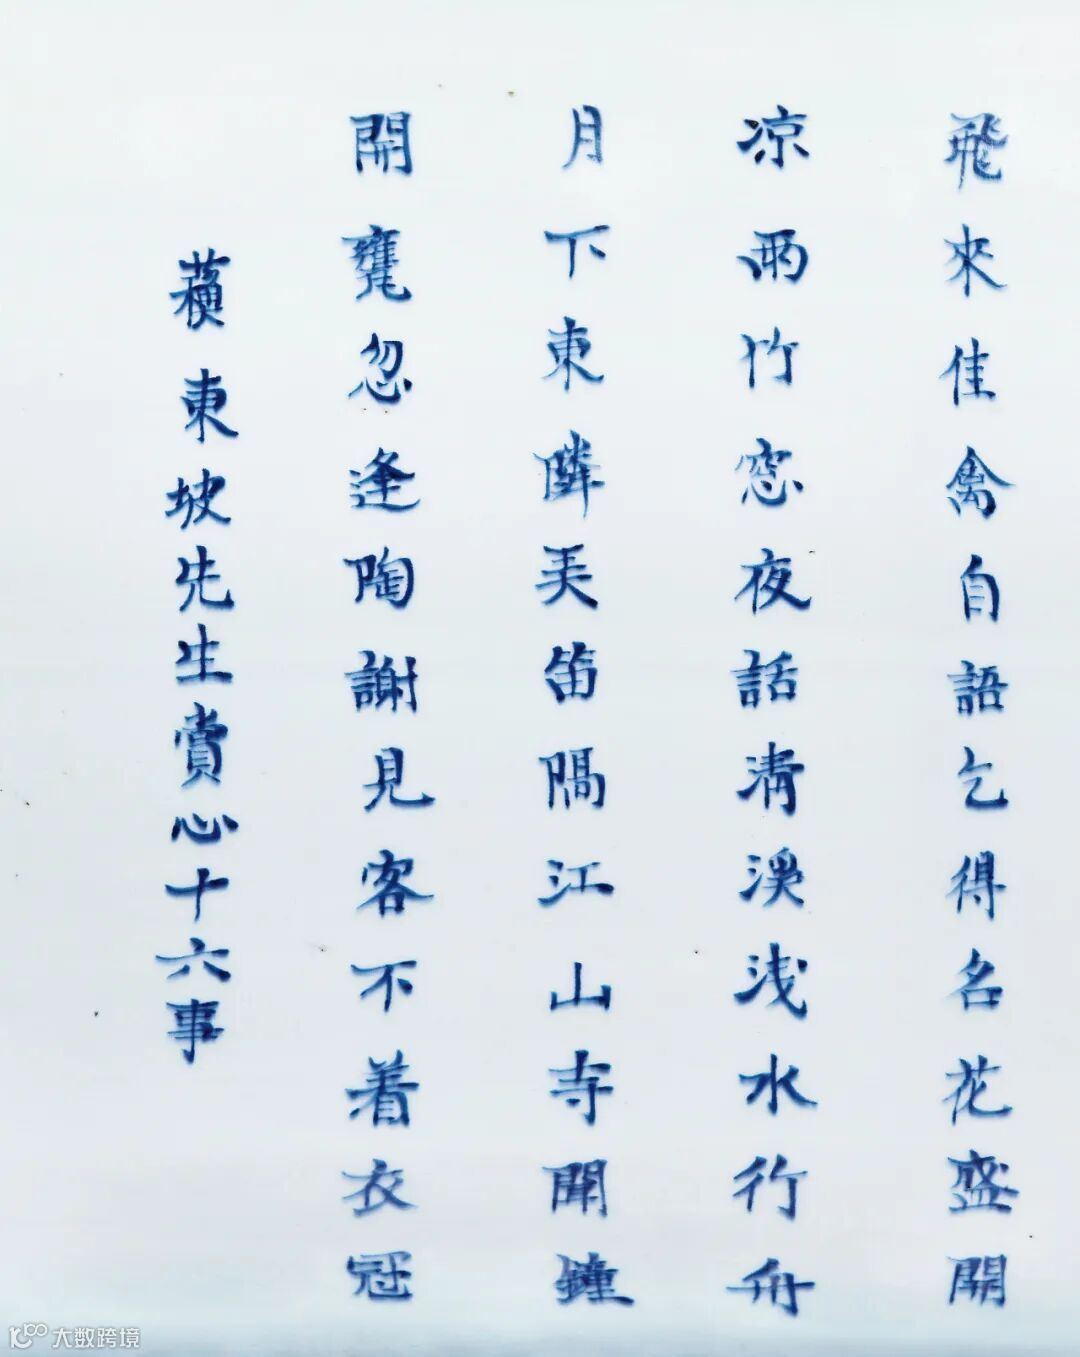 飛來佳禽自語乞得名花盛開
凉雨竹窓夜話清溪浅水行舟
月下東隣美笛隔江山寺聞鐘
開甕忽逢陶謝見客不着衣冠
蘇東坡先生賞心十六事
大数跨境